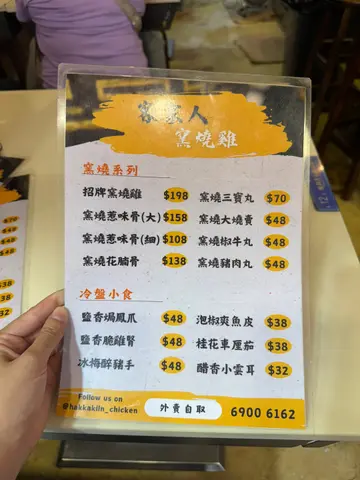 客家人
窯燒雞
窯燒系列
招牌窯燒雞 $198 窯燒三寶丸 $70
窯燒惹味骨(大) $158 窯燒大燒賣 $48
窯燒惹味骨(細) $108 窯燒椒牛丸 $48
窯燒花腩骨 $138 窯燒豬肉丸 $48
冷盤小食
鹽香焗鳳爪 $48 泡椒爽魚皮 $38
鹽香脆雞腎 $48 桂花車厘茄 $38
冰梅醉豬手 $48 醋香小雲耳 $32
Follow us on
@hakkakiln_chicken
外賣自取 6900 6162
$70
$48
$48
$48
$38
$38
$32